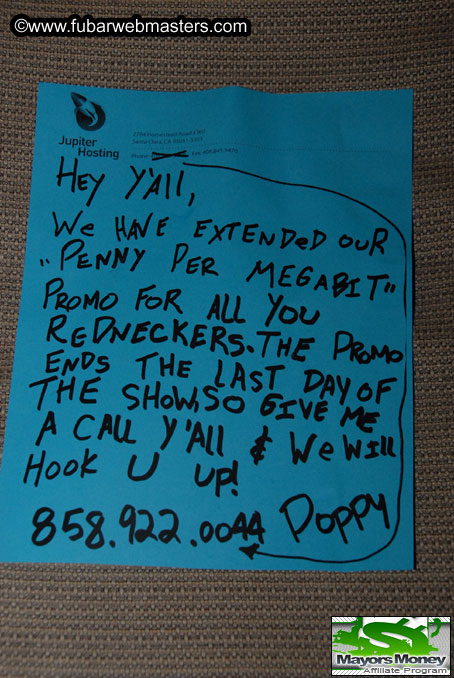 ©www.fubarwebmasters.com
Jupiter
Hosting
Santa Clara, CA
Phone:
HEY Y'All,
We HAVE EXTENDeD OUR
"PENNY PER MEGABIT"
PROMO FOR ALL YOU
REDNECKERS. THE PROMO
ENDS THE LAST DAY OF
THE SHOW, SO GIVE ME
A CALL Y'All & We Will
HOOK U UP!
858.922.0044 POPPY
$
Mayors Money
Affiliate Program